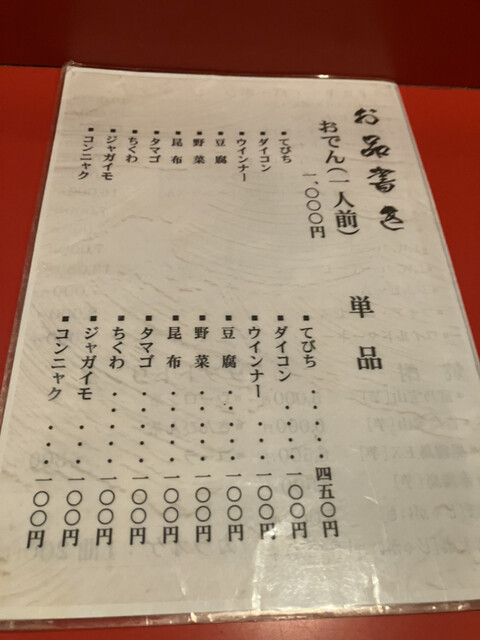 お品書き
おでん(一人前)
一、〇〇〇円
▪てびち
▪ダイコン
▪ウインナー
▪豆腐
▪野菜
▪昆布
▪タマゴ
▪ちくわ
▪ジャガイモ
▪コンニャク
単品
▪てびち・・・・四五〇円
▪ダイコン・・・・一〇〇円
▪ウインナー・・・・一〇〇円
▪豆腐・・・・一〇〇円
▪野菜・・・・一〇〇円
▪昆布・・・・一〇〇円
▪タマゴ・・・・一〇〇円
▪ちくわ・・・・一〇〇円
▪ジャガイモ・・・一〇〇円
▪コンニャク・・・一〇〇円